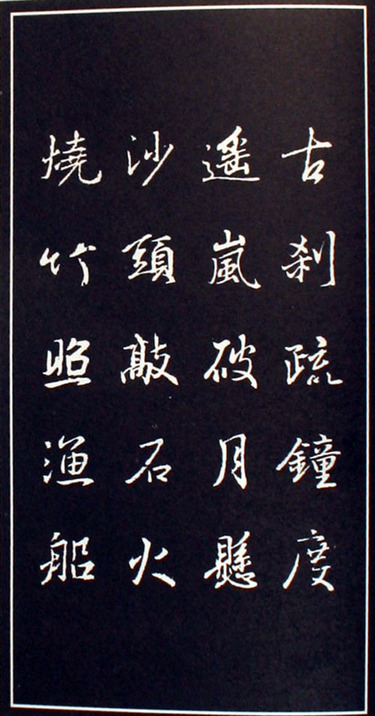 古刹疏鐘度
遥嵐破月懸
沙頭敲石火
燒竹照漁船